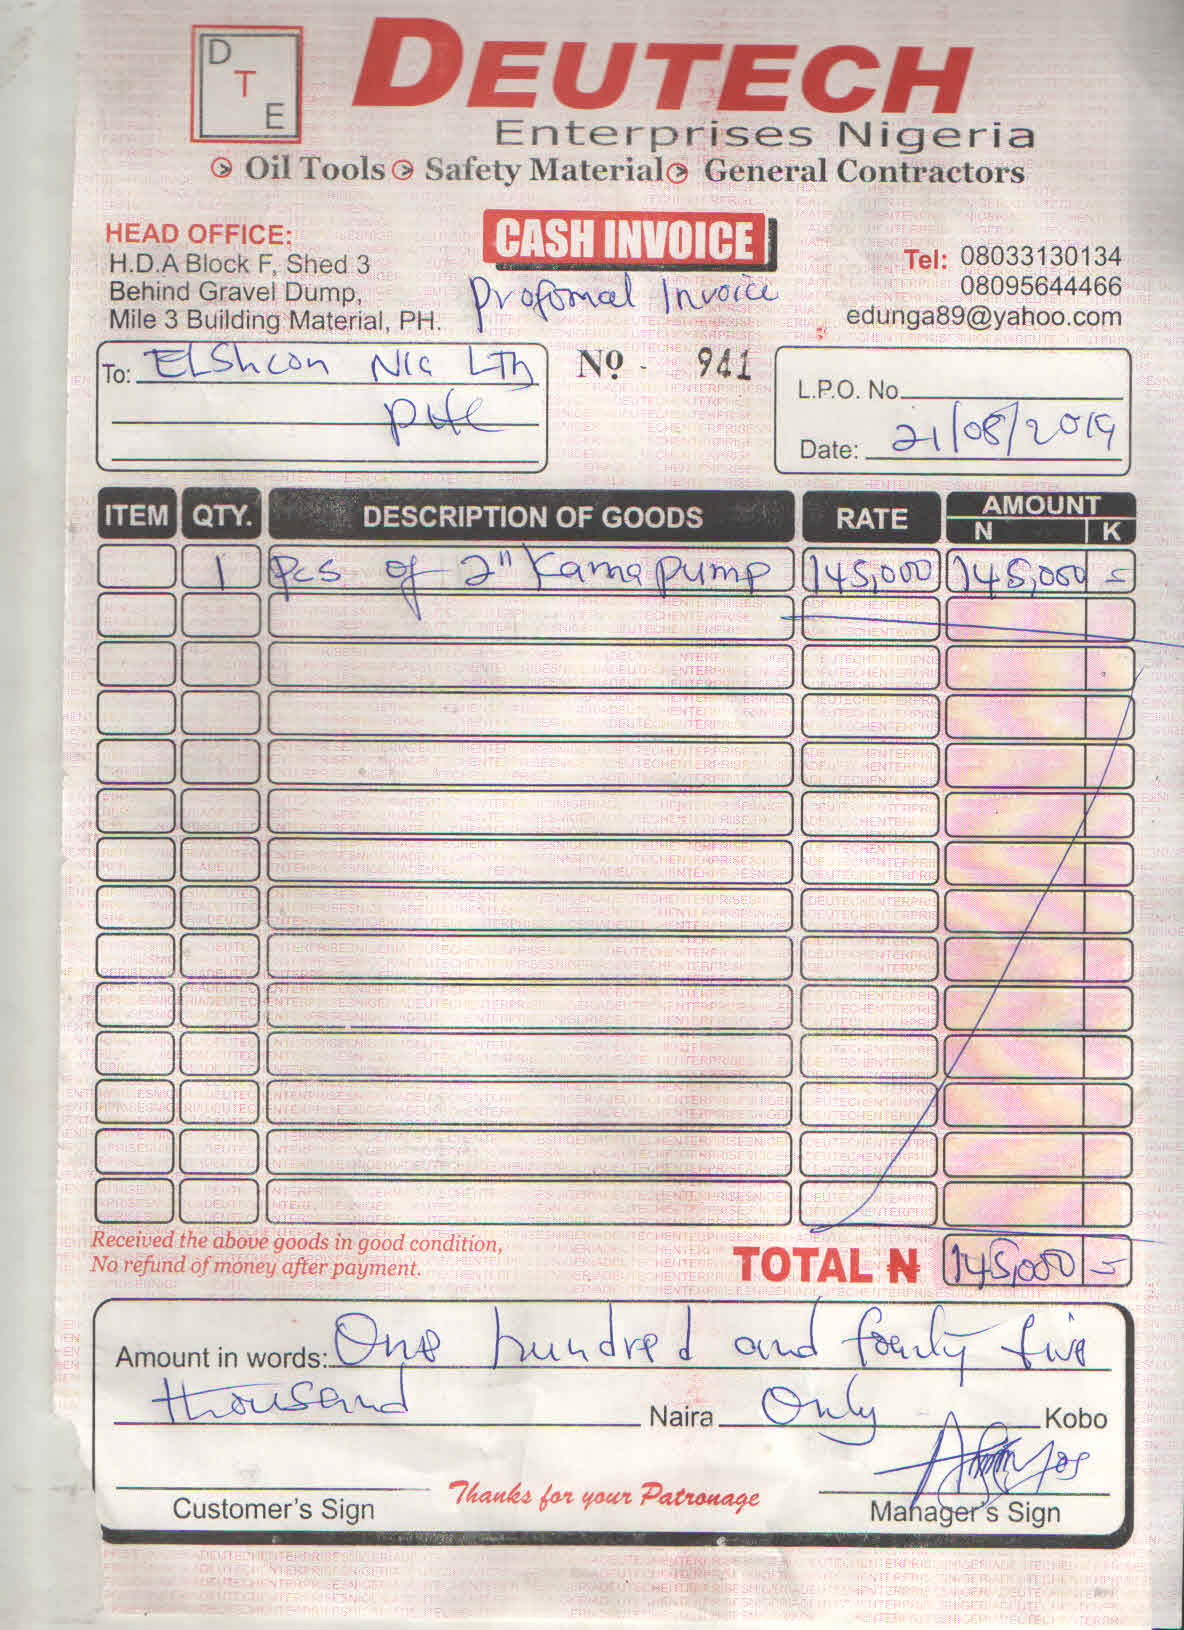 D
T
E
DEUTECH
Enterprises Nigeria
Oil Tools Safety Material General Contractors
HEAD OFFICE:
H.D.A Block F, Shed 3
Behind Gravel Dump,
Mile 3 Building Material, PH.
CASH INVOICE
Profomal Invoice
Tel: 08033130134
08095644466
edunga89@yahoo.com
To: ELShcon NIG LTD
PHC
Nº 941
L.P.O. No
Date: 21/08/2019
ITEM QTY. DESCRIPTION OF GOODS RATE AMOUNT
N K
1 Pcs of 2" Kama pump 145,000 145,000 =
Received the above goods in good condition,
No refund of money after payment.
TOTAL ₦ 145,000 =
Amount in words: One hundred and fourty five
thousand Naira Only Kobo
Customer's Sign
Thanks for your Patronage
Manager's Sign